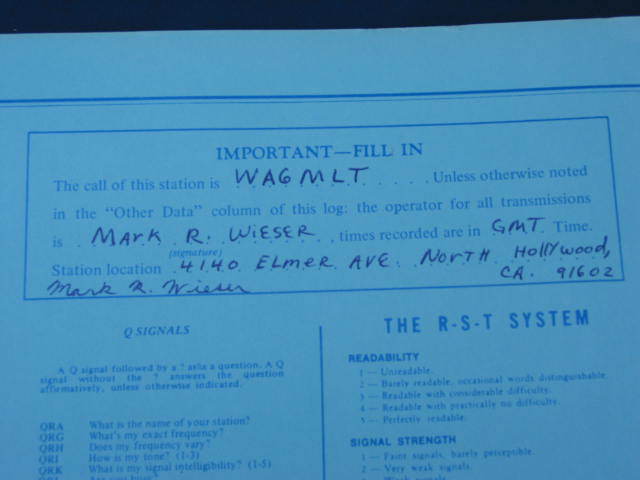 IMPORTANT—FILL IN
The call of this station is WA6MLT . Unless otherwise noted
in the "Other Data" column of this log: the operator for all transmissions
is Mark R. Wieser, times recorded are in GMT Time.
(signature)
Station location 4140 Elmer Ave. North Hollywood,
CA. 91602
Mark R. Wieser
Q SIGNALS
A Q signal followed by a ? asks a question. A Q
signal without the ? answers the question
affirmatively, unless otherwise indicated.
QRA What is the name of your station?
QRG What's my exact frequency?
QRH Does my frequency vary?
QRI How is my tone? (1-3)
QRK What is my signal intelligibility? (1-5)
QRL Are you busy?
THE R-S-T SYSTEM
READABILITY
1 — Unreadable.
2 — Barely readable, occasional words distinguishable.
3 — Readable with considerable difficulty.
4 — Readable with practically no difficulty.
5 — Perfectly readable.
SIGNAL STRENGTH
1 — Faint signals, barely perceptible.
2 — Very weak signals.
3 — Weak signals.